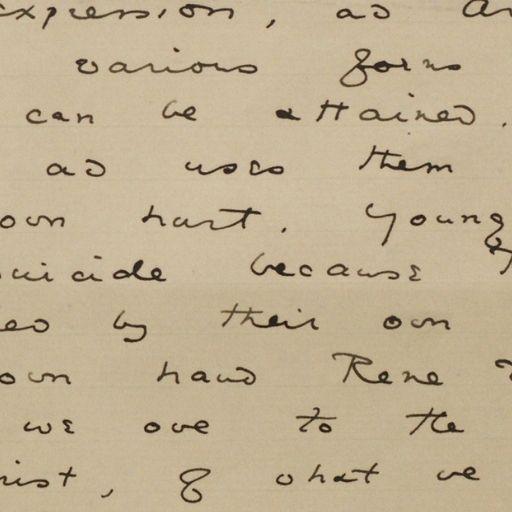 expression, as
various forms
can be attained.
as uses them
own hurt. Young
suicide because
by their own
own hand Rene
we owe to the
, & what we